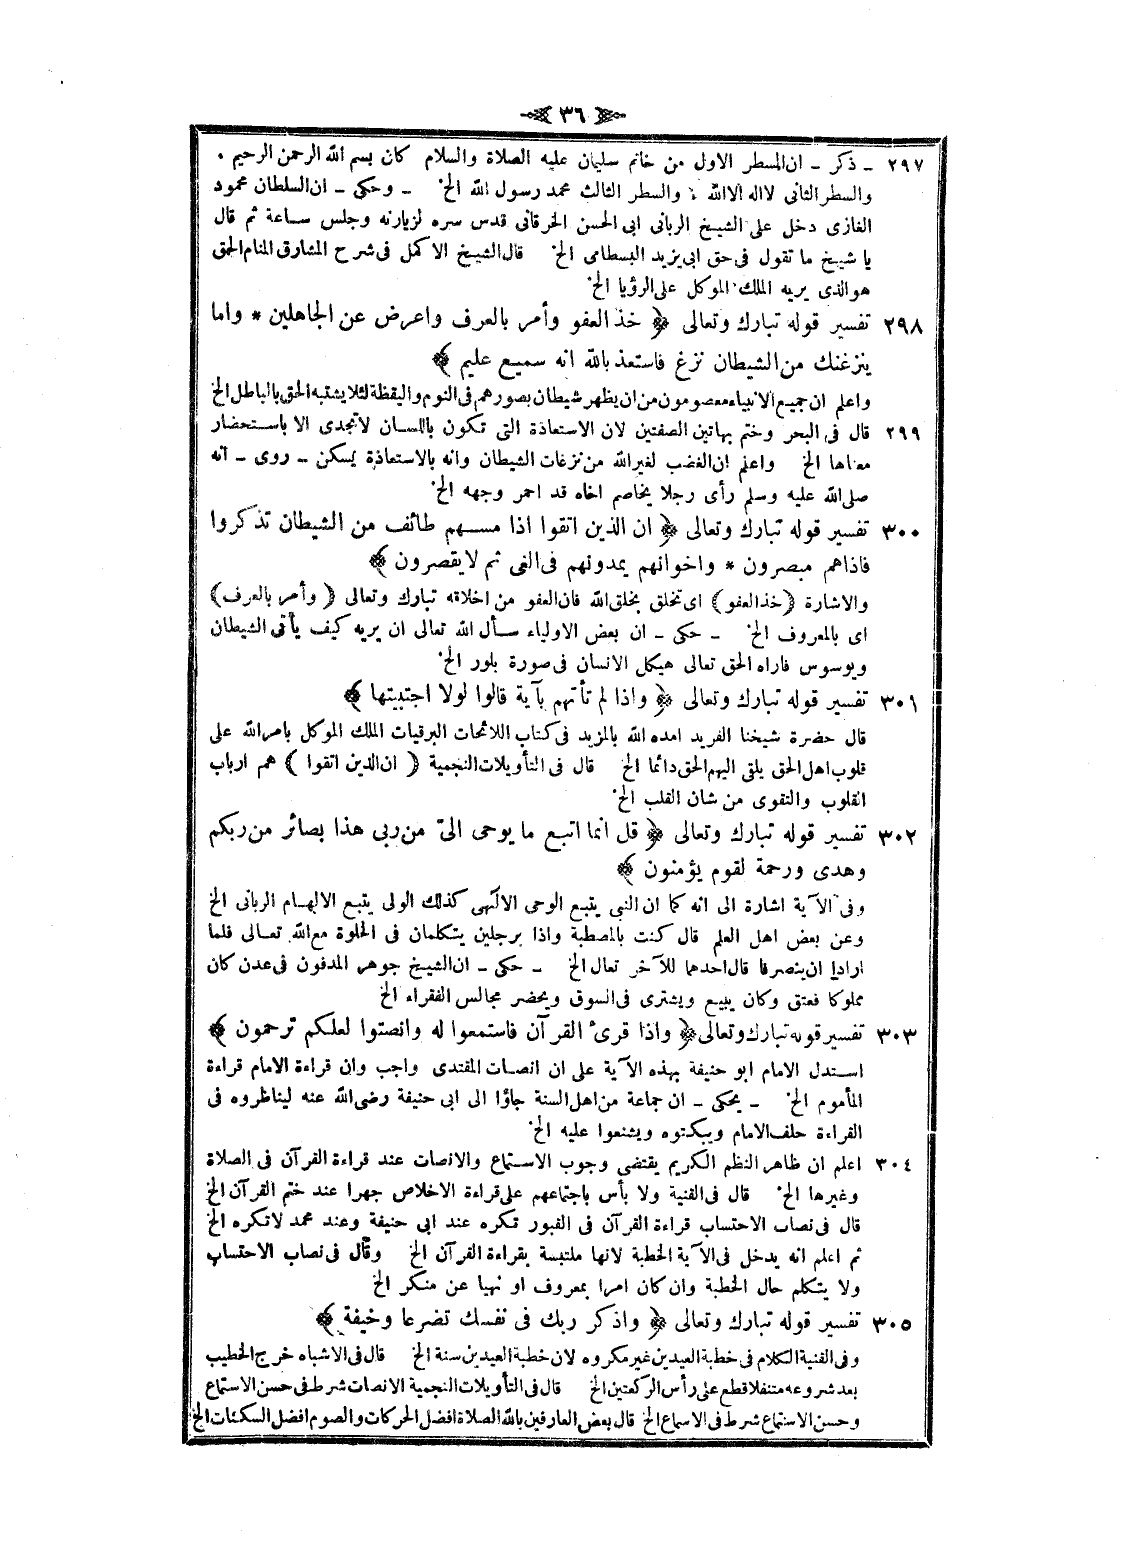 ٣٦
٢٩٧ ـ ذكر ـ ان السطر الاول من خاتم سليمان عليه الصلاة والسلام كان بسم الله الرحمن الرحيم .
والسطر الثانى لااله الاالله ، والسطر الثالث محمد رسول الله الخ ـ وحكى ـ ان السلطان محمود
الغازى دخل على الشيخ الربانى ابى الحسن الخرقانى قدس سره لزيارته وجلس ساعة ثم قال
يا شيخ ما تقول فى حق ابى يزيد البسطامى الخ قال الشيخ الاكمل فى شرح المشارق المنام الحق
هو الذى يريه الملك الموكل على الرؤيا الخ
٢٩٨ تفسير قوله تبارك وتعالى ﴿ خذ العفو وأمر بالعرف واعرض عن الجاهلين * واما
ينزغنك من الشيطان نزغ فاستعذ بالله انه سميع عليم ﴾
واعلم ان جميع الانبياء معصومون من ان يظهر شيطان بصورهم فى النوم واليقظة لئلا يشتبه الحق بالباطل الخ
٢٩٩ قال فى البحر وختم بهاتين الصفتين لان الاستعاذة التى تكون باللسان لاتجدى الا باستحضار
معناها الخ واعلم ان الغضب لغير الله من نزغات الشيطان وانه بالاستعاذة يسكن ـ روى ـ انه
صلى الله عليه وسلم رأى رجلا يخاصم اخاه قد احمر وجهه الخ
٣٠٠ تفسير قوله تبارك وتعالى ﴿ ان الذين اتقوا اذا مسهم طائف من الشيطان تذكروا
فاذاهم مبصرون * واخوانهم يمدونهم فى الغى ثم لايقصرون ﴾
والاشارة ( خذ العفو ) اى تخلق بخلق الله فان العفو من اخلاقه تبارك وتعالى ( وأمر بالعرف )
اى بالمعروف الخ ـ حكى ـ ان بعض الاولياء سأل الله تعالى ان يريه كيف يأتى الشيطان
ويوسوس فاراه الحق تعالى هيكل الانسان فى صورة بلور الخ
٣٠١ تفسير قوله تبارك وتعالى ﴿ واذا لم تأتهم بآية قالوا لولا اجتبيتها ﴾
قال حضرة شيخنا الفريد امده الله بالمزيد فى كتاب اللائحات البرقيات الملك الموكل بامر الله على
قلوب اهل الحق يلقى اليهم الحق دائما الخ قال فى التأويلات النجمية ( ان الذين اتقوا ) هم ارباب
القلوب والتقوى من شان القلب الخ
٣٠٢ تفسير قوله تبارك وتعالى ﴿ قل انما اتبع ما يوحى الىّ من ربى هذا بصائر من ربكم
وهدى ورحمة لقوم يؤمنون ﴾
وفى الآية اشارة الى انه كما ان النبى يتبع الوحى الالٓهى كذلك الولى يتبع الالهام الربانى الخ
وعن بعض اهل العلم قال كنت بالمصطبة واذا برجلين يتكلمان فى الخلوة مع الله تعالى فلما
ارادا ان ينصرفا قال احدهما للآخر تعال الخ ـ حكى ـ ان الشيخ جوهر المدفون فى عدن كان
مملوكا فعتق وكان يبيع ويشترى فى السوق ويحضر مجالس الفقراء الخ
٣٠٣ تفسير قوله تبارك وتعالى ﴿ واذا قرئ القرآن فاستمعوا له وانصتوا لعلكم ترحمون ﴾
استدل الامام ابو حنيفة بهذه الآية على ان انصات المقتدى واجب وان قراءة الامام قراءة
المأموم الخ ـ يحكى ـ ان جماعة من اهل السنة جاؤا الى ابى حنيفة رضى الله عنه ليناظروه فى
القراءة خلف الامام ويبكتوه ويشنعوا عليه الخ
٣٠٤ اعلم ان ظاهر النظم الكريم يقتضى وجوب الاستماع والانصات عند قراءة القرآن فى الصلاة
وغيرها الخ قال فى القنية ولا بأس باجتماعهم على قراءة الاخلاص جهرا عند ختم القرآن الخ
قال فى نصاب الاحتساب قراءة القرآن فى القبور تكره عند ابى حنيفة وعند محمد لاتكره الخ
ثم اعلم انه يدخل فى الآية الخطبة لانها ملتبسة بقراءة القرآن الخ وقال فى نصاب الاحتساب
ولا يتكلم حال الخطبة وان كان امرا بمعروف او نهيا عن منكر الخ
٣٠٥ تفسير قوله تبارك وتعالى ﴿ واذكر ربك فى نفسك تضرعا وخيفة ﴾
وفى القنية الكلام فى خطبة العيدين غير مكروه لان خطبة العيدين سنة الخ قال فى الاشباه خرج الخطيب
بعد شروعه متنفلا قطع على رأس الركعتين الخ قال فى التأويلات النجمية الانصات شرط فى حسن الاستماع
وحسن الاستماع شرط فى الاسماع الخ قال بعض العارفين بالله الصلاة افضل الحركات والصوم افضل السكنات الخ